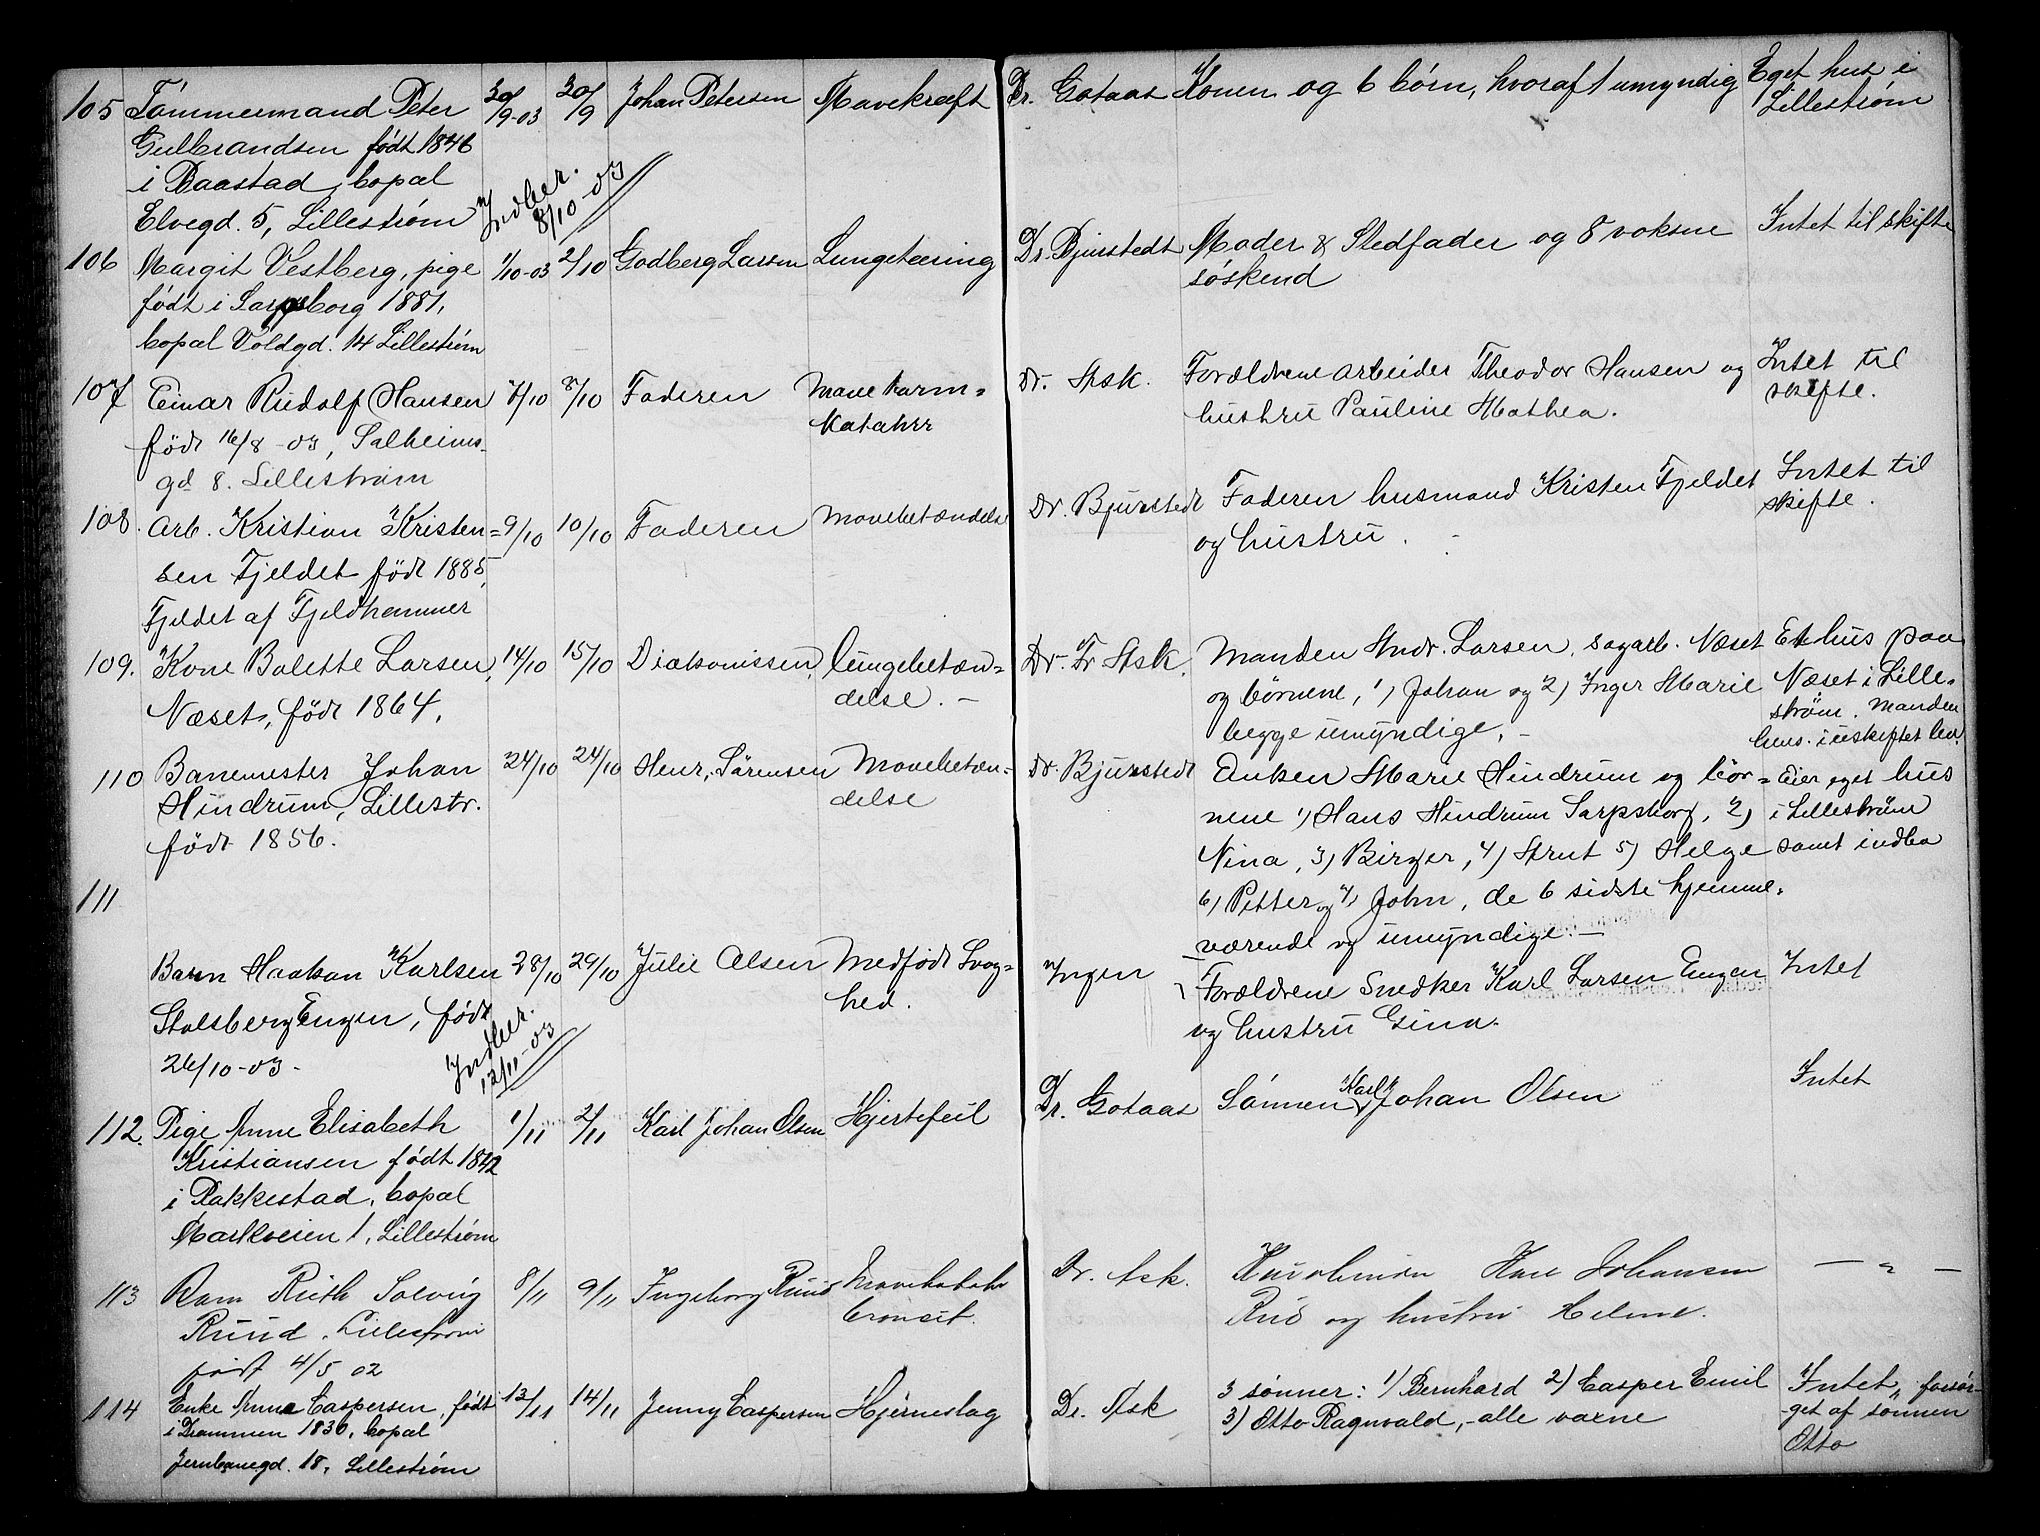 105 Tömmermand Peter 30/9-03 30/9 Johan Petersen Mavekræft Dr. Gotaas Konen og 6 börn, hvoraf 1 umyndig Eget hus i
Gulbrandsen født 1846 Lillestrøm
i Baastad, bopæl
Elvegd. 5, Lillestrøm Indber. 8/10-03
106 Margit Vestberg, pige 1/10-03 2/10 Godberg Larsen Lungetæring Dr. Bjurstedt Moder & Stedfader og 8 voksne Intet til skifte
født i Sarpsborg 1881, søskend
bopæl Voldgd. 14 Lillestrøm
107 Einar Rudolf Hansen 7/10 8/10 Faderen Mave tarm= Dr. Ask. Forældrene arbeider Theodor Hansen og Intet til
født 16/8-03, Solheims- katahrr hustru Pauline Mathea. skifte.
gd 8. Lillestrøm
108. Arb. Kristian Kristen= 9/10 10/10 Faderen Mavebetændelse Dr. Bjurstedt Faderen husmand Kristen Fjeldet Intet til
sen Fjeldet født 1885, og hustru. skifte.
Fjeldet af Fjeldhammer
109. Kone Bolette Larsen, 14/10 15/10 Diakonissen, lungebetæn= Dr. Fr Ask. Manden Andr. Larsen, sagarb. Næset Et hus paa
Næset, født 1864, delse. - og børnene, 1) Johan og 2) Inger Marie Næset i Lille=
begge umyndige. - strøm. Manden
hens. i uskiftet bo.
110 Banemester Johan 24/10 24/10 Henr. Sörensen Mavebetæn= Dr. Bjurstedt Enken Marie Hindrum og bør= Eier eget hus
Hindrum, Lillestr. delse nene 1) Hans Hindrum Sarpsborg, 2) i Lillestrøm
født 1856. Nina, 3) Birger, 4) Knut 5) Helge samt indbo
6) Petter og 7) John, de 6 sidste hjemme=
værende og umyndige. -
111
Barn Haakon Karlsen 28/10 29/10 Julie Olsen Medfødt Svag= Ingen Forældrene Snedker Karl Larsen Engen Intet
Stalsberg Engen, født hed. og hustru Gina.
26/10-03. Indber. 12/11-03
112. Pige Anne Elisabeth 1/11 2/11 Karl Johan Olsen Hjertefeil Dr. Gotaas Sönnen Karl Johan Olsen Intet
Kristiansen født 1842
i Rakkestad, bopæl
Markveien 1, Lillestrøm
113 Barn Ruth Solveig 8/11 9/11 Ingeborg Ruud Dr. Ask. Johansen — „ —
Ruud, Lillestrøm Rud og hustru
født 4/5 02
114 Enke Anne Caspersen, født 13/11 14/11 Jenny Caspersen Hjerneslag Dr. Ask 3 sønner: 1) Bernhard 2) Casper Emil Intet, forsör-
i Drammen 1830, bopæl 3) Otto Ragnvald, - alle voxne get af sönnen
Jernbanegd. 18, Lillestrøm Otto